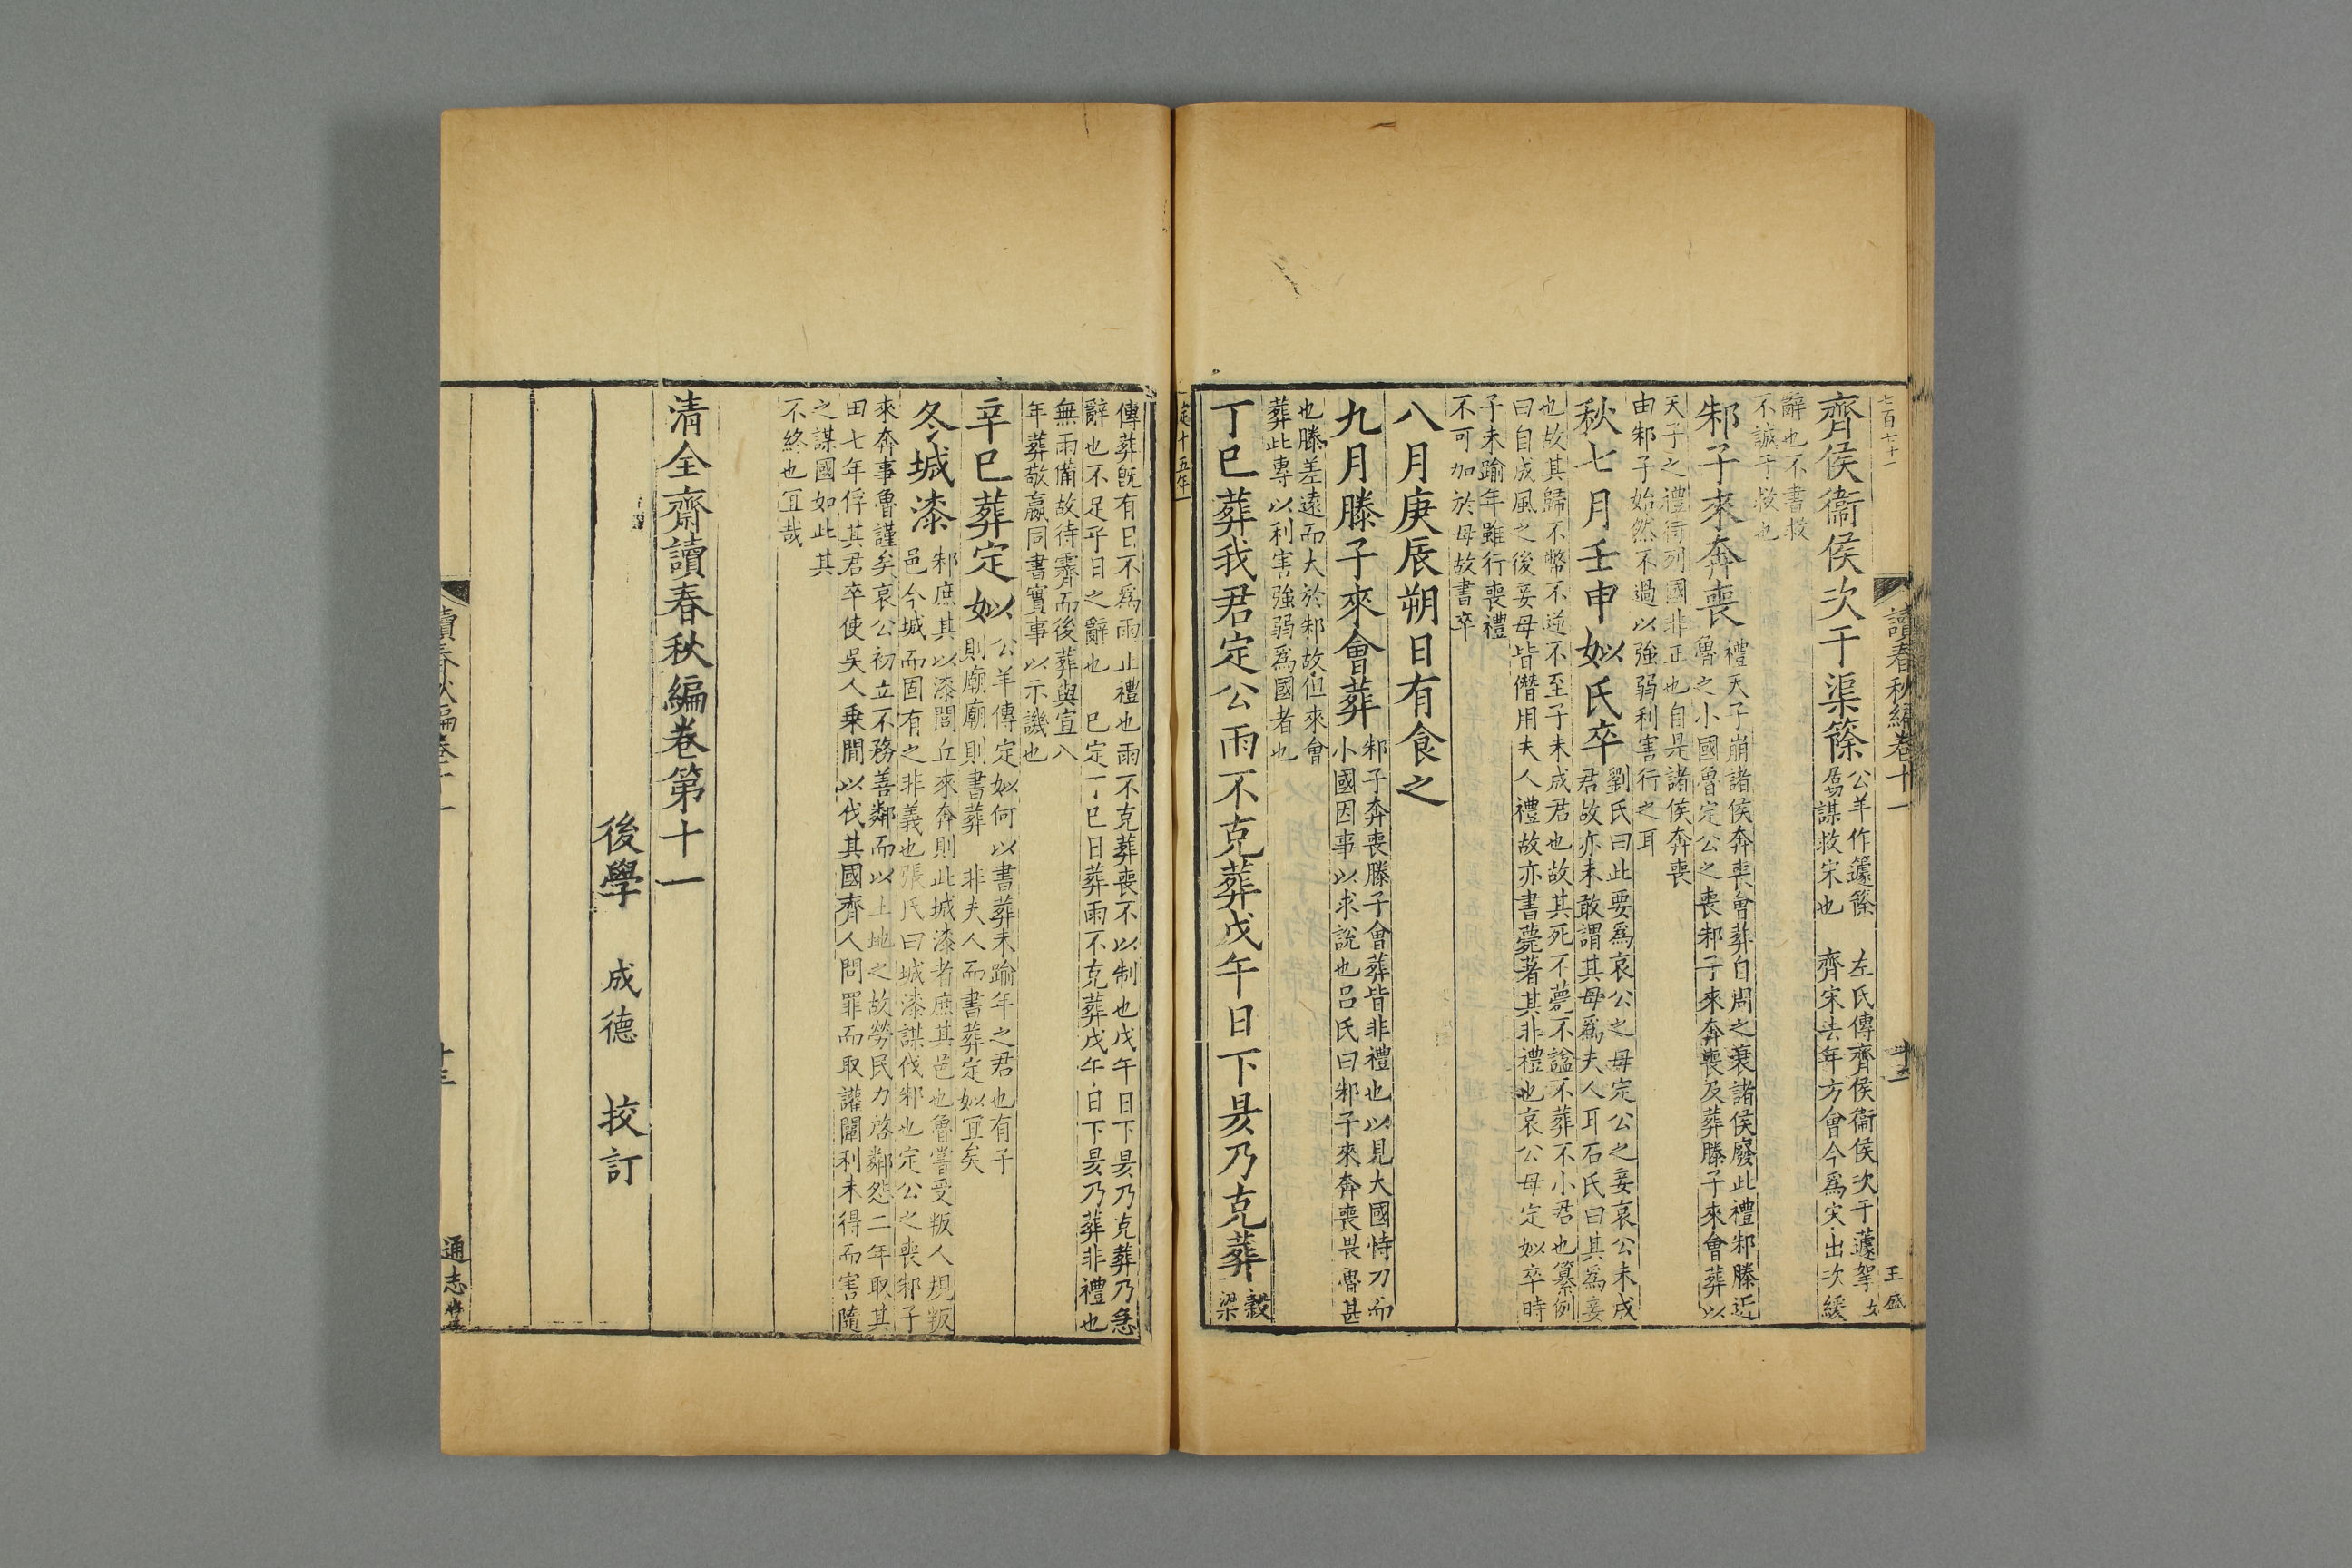 七百七十一
讀春秋編卷十一
王盛
齊侯衞侯次于渠篨
公羊作籧篨 左氏傳齊侯衞侯次于蘧挐
謀救宋也 齊宋去年方會今為宋出次緩
辭也不書救
不誠于救也
邾子來奔喪
禮天子崩諸侯奔喪會葬自周之衰諸侯廢此禮邾滕近
魯之小國魯定公之喪邾子來奔喪及葬滕子來會葬以
天子之禮待列國非正也自是諸侯奔喪
由邾子始然不過以強弱利害行之耳
秋七月壬申姒氏卒
劉氏曰此要為哀公之母定公之妾哀公未成
君故亦未敢謂其母爲夫人耳石氏曰其爲妾
也故其歸不幣不逆不至子未成君也故其死不薨不諡不葬不小君也纂例
曰自成風之後妾母皆僭用夫人禮故亦書薨著其非禮也哀公母定姒卒時
子未踰年雖行喪禮
不可加於母故書卒
八月庚辰朔日有食之
九月滕子來會葬
邾子奔喪滕子會葬皆非禮也以見大國恃力而
小國因事以求說也呂氏曰邾子來奔喪畏魯甚
也滕差遠而大於邾故但來會
葬此專以利害強弱爲國者也
丁巳葬我君定公雨不克葬戊午日下昃乃克葬
穀
梁
定十五年
傳葬旣有日不爲雨止禮也雨不克葬喪不以制也戊午日下昃乃克葬乃急
辭也不足乎日之辭也 己定丁巳日葬雨不克葬戊午日下昃乃葬非禮也
無雨備故待霽而後葬與宣八
年葬敬嬴同書實事以示譏也
辛巳葬定姒
公羊傳定姒何以書葬未踰年之君也有子
則廟廟則書葬 非夫人而書葬定姒宜矣
冬城漆
邾庶其以漆閭丘來奔則此城漆者庶其邑也魯嘗受叛人規叛
邑今城而固有之非義也張氏曰城漆謀伐邾也定公之喪邾子
來奔事魯謹矣哀公初立不務善鄰而以土地之故勞民力啓鄰怨二年取其
田七年俘其君卒使吳人乗間以伐其國齊人問罪而取讙闡利未得而害隨
之謀國如此其
不終也宜哉
清全齋讀春秋編卷第十一
後學 成德 挍訂
讀春秋編卷十一
十三
通志堂